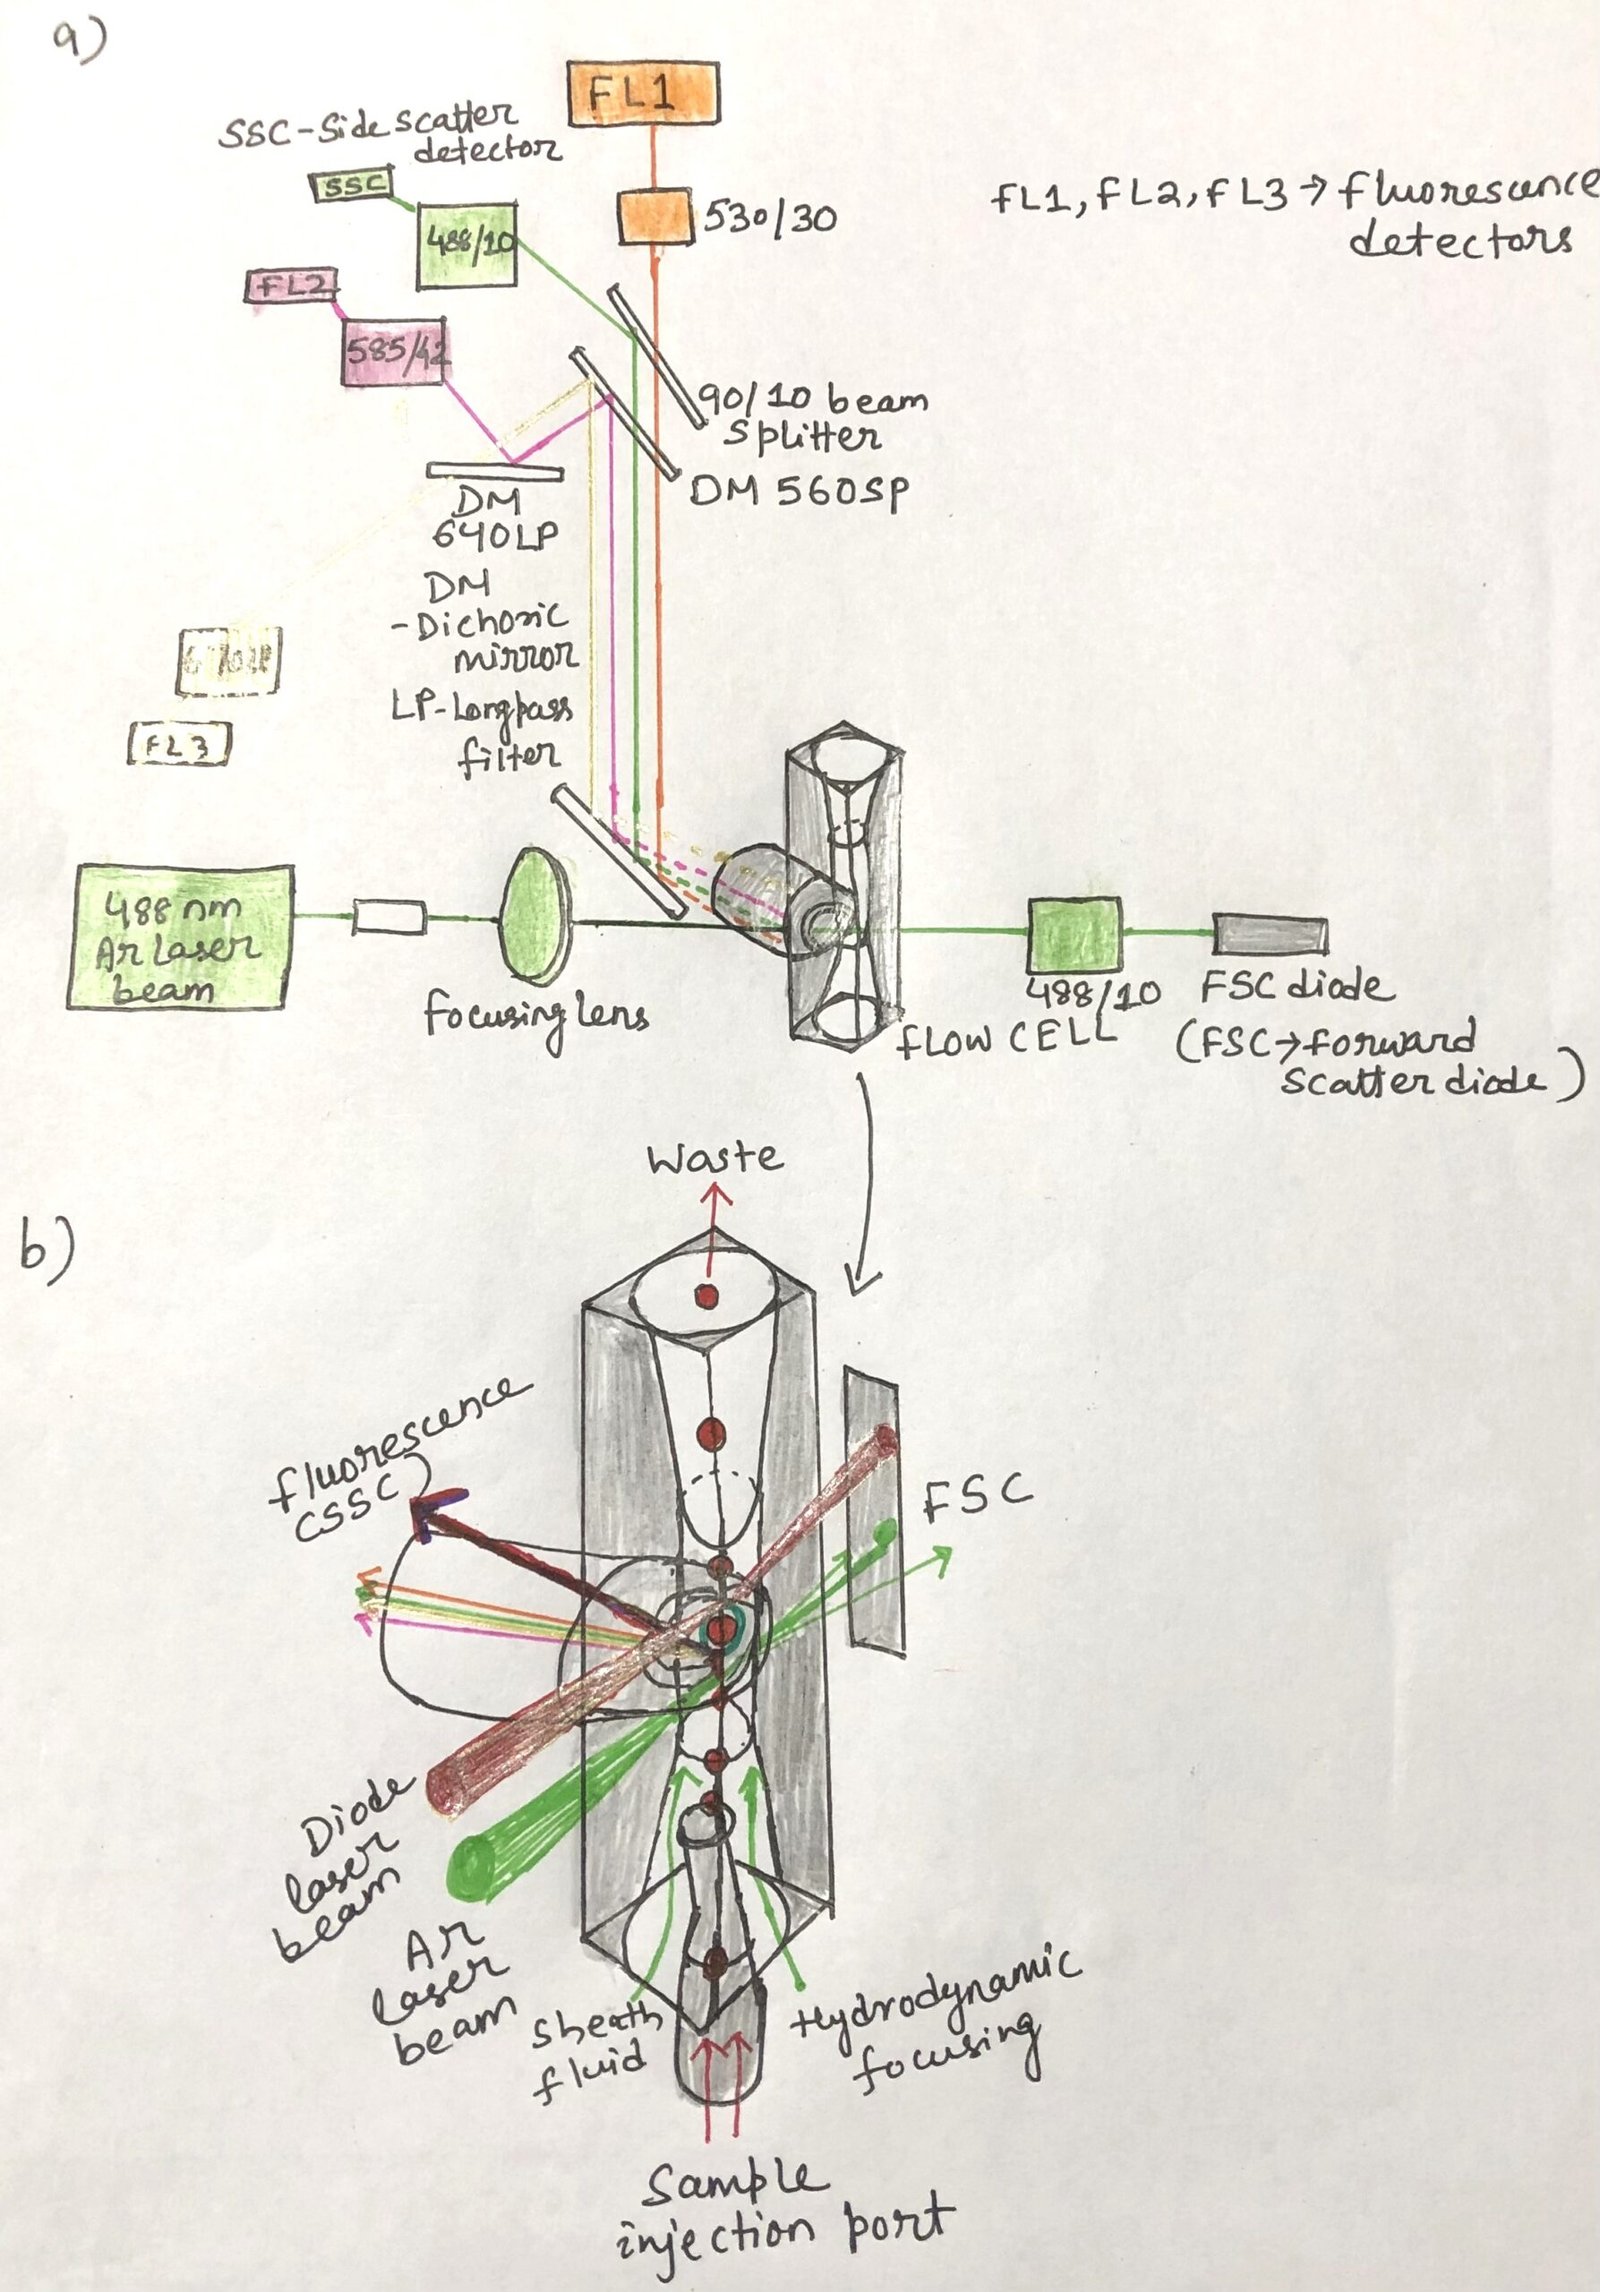 a)
FL1
SSC-Side scatter
detector
SSC
488/10
530/30
FL1, FL2, FL3 → fluorescence
detectors
FL2
585/42
90/10 beam
splitter
DM 560SP
DM
640LP
DM
-Dichoric
mirror
LP-Longpass
filter
FL3
488 nm
Ar Laser
beam
focusing lens
FLOW CELL
488/10
FSC diode
(FSC→forward
scatter diode)
Waste
b)
fluorescence
CSSC)
FSC
Diode
laser
beam
Ar
laser
beam
Sheath
fluid
Hydrodynamic
focusing
Sample
injection port